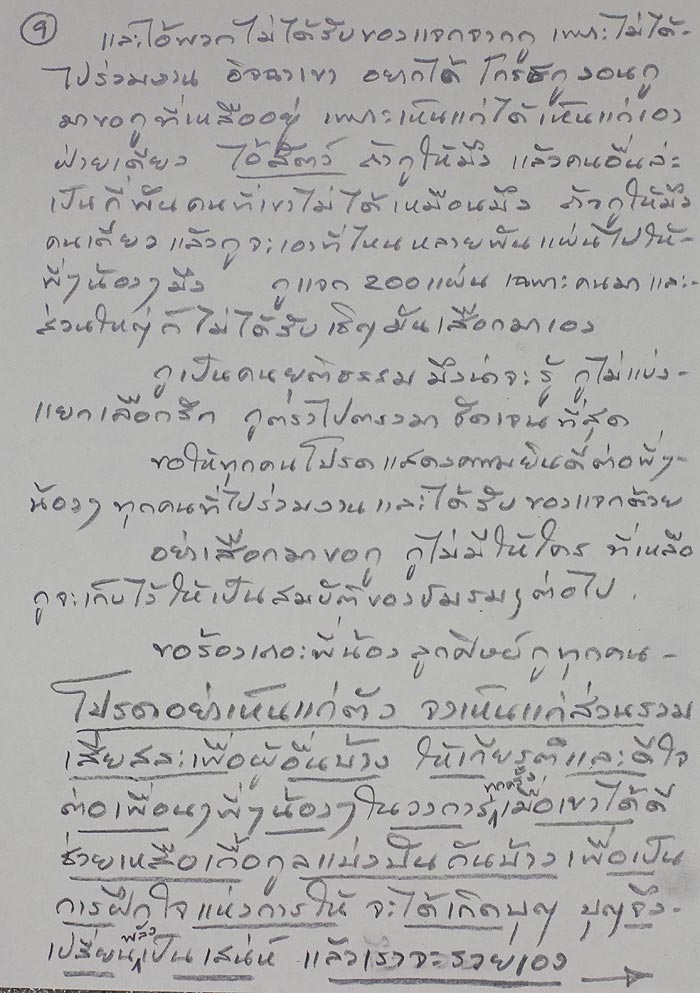 ๑
และไอ้พวกไม่ได้รับของแจกจากกู เพราะไม่ได้-
ไปร่วมงาน อิจฉาเขา อยากได้ โกรธกู งอนกู
มาขอกูที่เหลืออยู่ เพราะเห็นแก่ได้ เห็นแก่เอง
ฝ่ายเดียว ไอ้สัตว์ ถ้ากูให้มึง แล้วคนอื่นล่ะ
เป็นกี่พันคนที่เขาไม่ได้เหมือนมึง ถ้ากูให้มึง
คนเดียว แล้วกูจะเอาที่ไหนหลายพันแผ่นไปให้-
พี่ๆน้องๆมึง กูแจก 200 แผ่น เฉพาะคนมา และ-
ส่วนใหญ่ก็ไม่ได้รับเชิญ มันเสือกมาเอง
กูเป็นคนยุติธรรม มึงน่าจะรู้ กูไม่แบ่ง-
แยกเลือกรัก กูตรงไปตรงมา ชัดเจนที่สุด
ขอให้ทุกคนโปรดแสดงความยินดีต่อพี่ๆ-
น้องๆ ทุกคนที่ไปร่วมงาน และได้รับของแจกด้วย
อย่าเสือกมาขอกู กูไม่มีให้ใคร ที่เหลือ
กูจะเก็บไว้ให้เป็นสมบัติของชมรมๆต่อไป .
ขอร้องเถอะพี่น้อง ลูกศิษย์กูทุกคน -
โปรดอย่าเห็นแก่ตัว จงเห็นแก่ส่วนรวม
เสียสละเพื่อผู้อื่นบ้าง ให้เกียรติและดีใจ
ต่อเพื่อนๆพี่ๆน้องๆในวงการทุกครั้งเมื่อเขาได้ดี
ช่วยเหลือเกื้อกูลแบ่งปันกันบ้าง เพื่อเป็น
การฝึกใจแห่งการให้ จะได้เกิดบุญ บุญจึง-
เปลี่ยนพลังเป็นเสน่ห์ แล้วเราจะรวยเอง